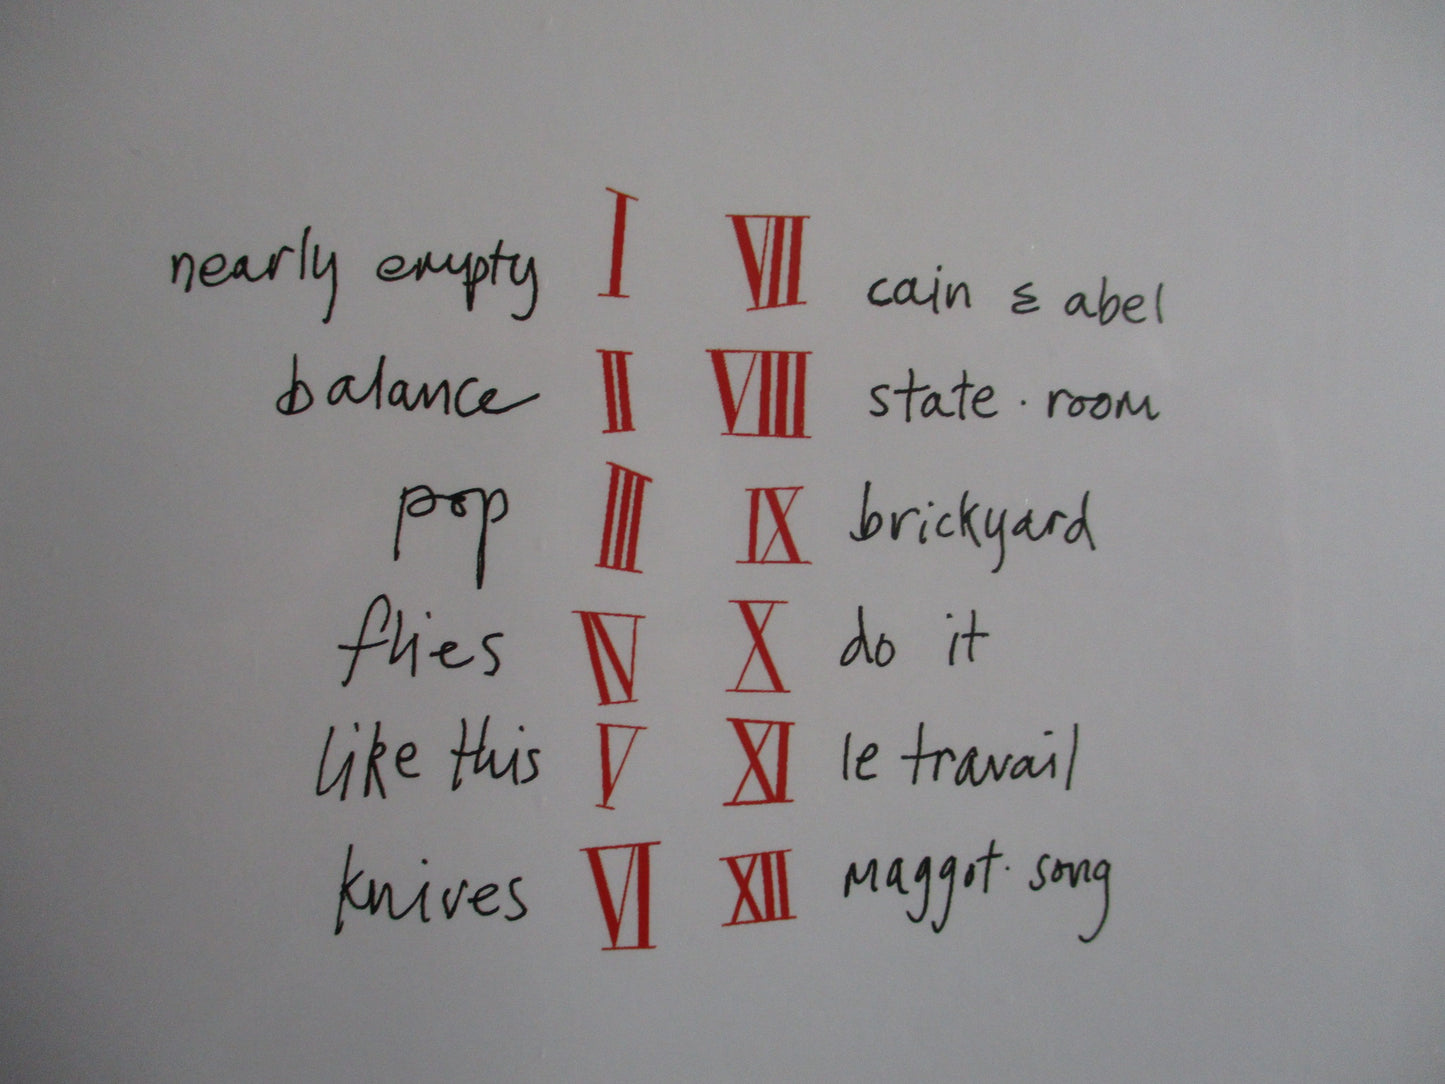 nearly empty I
balance II
pop III
flies IV
like this V
knives VI
VII cain & abel
VIII state · room
IX brickyard
X do it
XI le travail
XII maggot · song